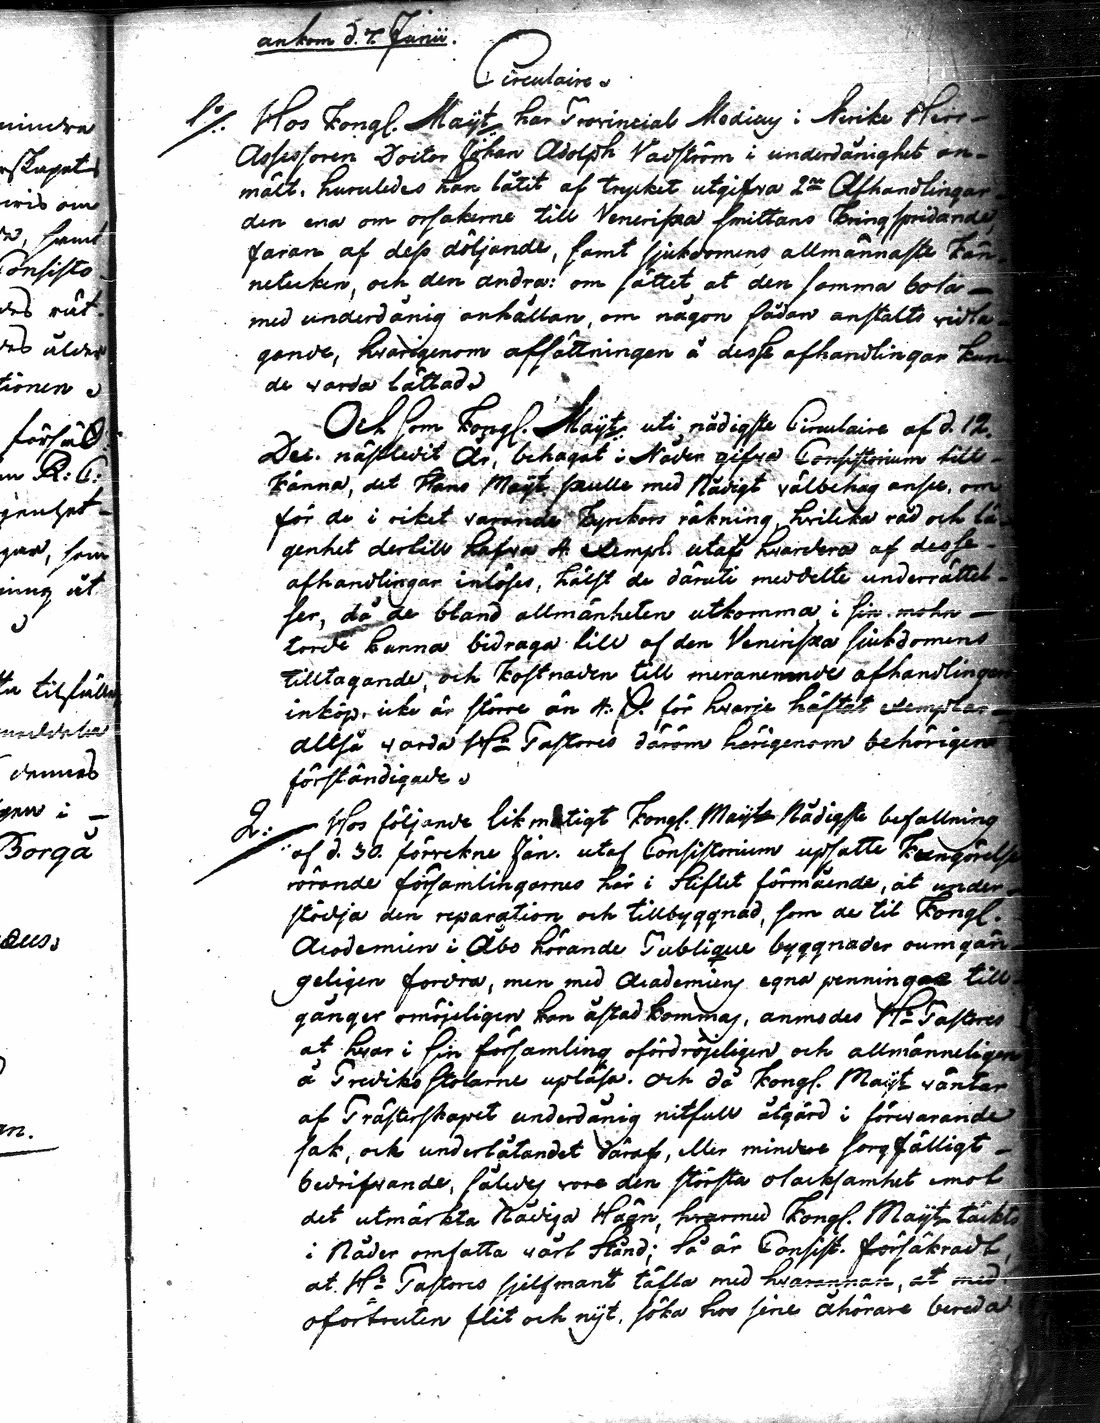 ankom d. 7. Junii.
Circulaire.
1o/: Hos Kongl. Maijt har Provincial Medicus i Nerike Herr
Assessoren Doctor Johan Adolph Wadström i underdånighet an-
mält, huruledes han låtit af trycket utgifva 2ne Afhandlingar
den ena om orsakerne till Veneriska smittans kringspridande,
faran af dess döljande, samt sjukdomens allmännaste kän-
netecken, och den andra: om sättet at den samma bota
med underdånig anhållan, om någon sådan anstalts vidta-
gande, hwarigenom afsättningen å desse afhandlingar kun-
de warda lättad.
Och som Kongl. Maijt uti nådigste Circulaire af d. 12.
Dec. nästledit År, behagat i Nåder gifva Consistorium till-
känna, det Hans Maijt skulle med Nådigt välbehag anse, om
för de i riket warande Kyrkors räkning, hvilcka råd och lä-
genhet dertill hafva 4. exempl. utaf hvardera af desse
afhandlingar inlöses, hälst de däruti meddelte underrättel-
ser, då de bland allmänheten utkomma i sin mohn
torde kunna bidraga till af den Veneriska sjukdomens
tilltagande, och kostnaden till meranemnde afhandlingars
inköp, icke är större än 4. S. för hvarje häftat exemplar
altså warda Hr Pastores däröm härigenom behörigen
förständigade.
2.: Hos följande likmätigt Kongl. Maijts Nådigste befallning
af d. 30. förrekne Jan. utaf Consistorium upsatte Kungörelse
rörande församlingarnes här i Stiftet förmående, at under-
stödja den reparation och tillbyggnad, som de til Kongl.
Academien i Åbo hörande Publique byggnader oumgän-
geligen fordra, men med Academiens egna penningar till-
gånger omöjeligen kan åstadkommas, anmodes Hr Pastores
at hvar i sin församling ofördröjeligen och allmänneligen
å Predikostolarne upläsa. Och då Kongl. Maijt väntar
af Prästerskapet underdånig nitfull åtgärd i förewarande
sak, och underlåtandet däraf, eller mindre sorgfälligt
bedrifvande, således wore den största otacksamhet emot
det utmärkta Nådiga Hägn, hwarmed Kongl. Maijt täckts
i Nåder omfatta vårt Stånd; Så är Consist. försäkradt,
at Hr Pastores sjelfmant täfla med hwarannan, at med
oförtruten flit och nijt, söka hos sine åhörare bereda